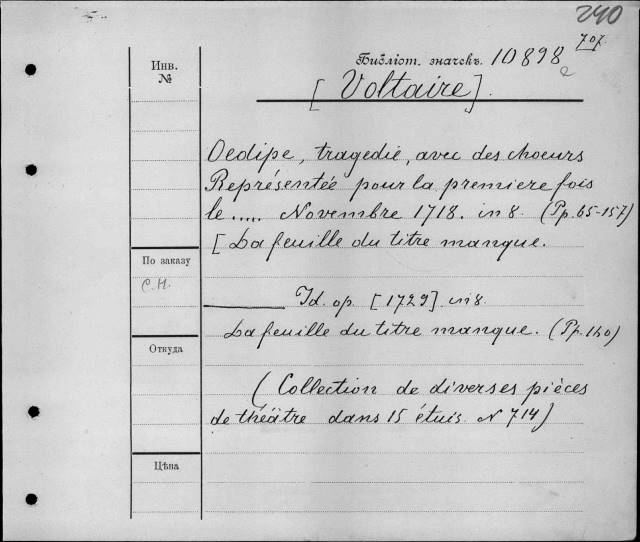 240
707.
Библіот. значекъ. 10898 e
[Voltaire].
Инв.
№
Oedipe, tragedie, avec des choeurs
Représentée pour la premiere fois
le ..... Novembre 1718. in 8. (Pp. 65-157)
[La feuille du titre manque.
По заказу
С.Н.
——— Id. op. [1729] in 8.
La feuille du titre manque. (Pp. 140)
Откуда
(Collection de diverses pièces
de théâtre dans 15 étuis. N 714)
Цѣна